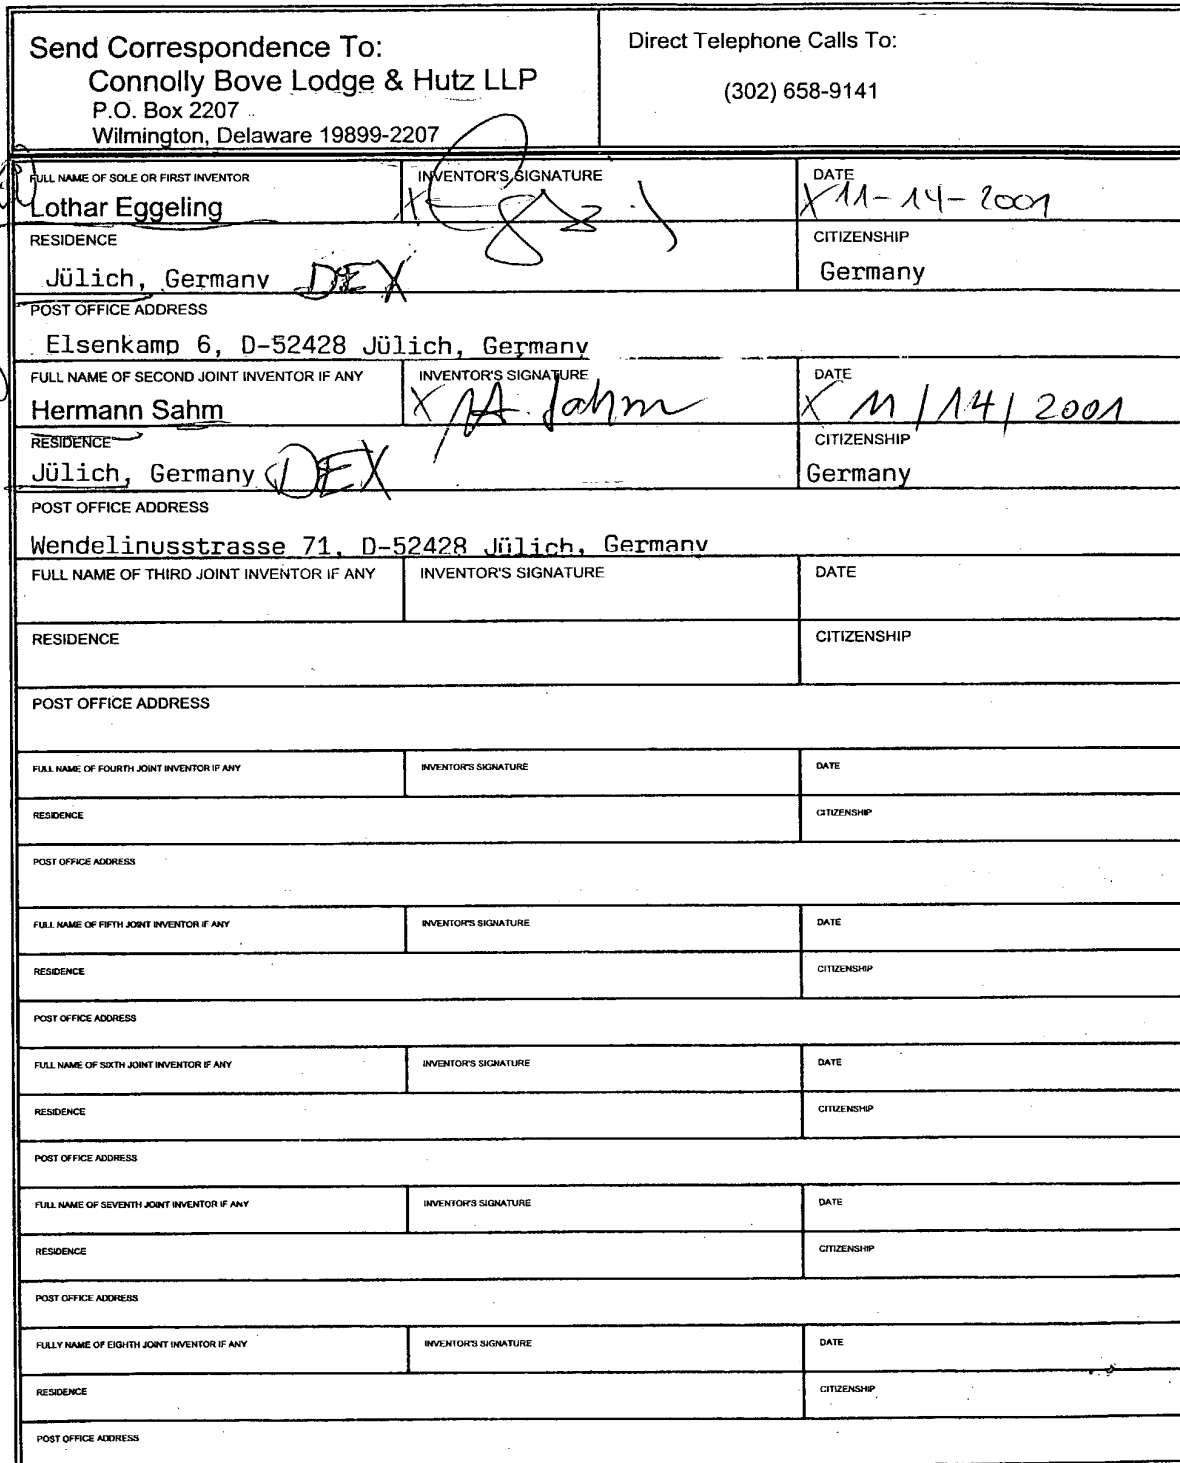 Send Correspondence To:
Connolly Bove Lodge & Hutz LLP
P.O. Box 2207
Wilmington, Delaware 19899-2207
Direct Telephone Calls To:
(302) 658-9141
FULL NAME OF SOLE OR FIRST INVENTOR INVENTOR'S SIGNATURE DATE
Lothar Eggeling X X 11-14-2001
RESIDENCE CITIZENSHIP
Jülich, Germany DEX Germany
POST OFFICE ADDRESS
Elsenkamp 6, D-52428 Jülich, Germany
FULL NAME OF SECOND JOINT INVENTOR IF ANY INVENTOR'S SIGNATURE DATE
Hermann Sahm X H. Sahm X 11/14/2001
RESIDENCE CITIZENSHIP
Jülich, Germany DEX Germany
POST OFFICE ADDRESS
Wendelinusstrasse 71, D-52428 Jülich, Germany
FULL NAME OF THIRD JOINT INVENTOR IF ANY INVENTOR'S SIGNATURE DATE
RESIDENCE CITIZENSHIP
POST OFFICE ADDRESS
FULL NAME OF FOURTH JOINT INVENTOR IF ANY INVENTOR'S SIGNATURE DATE
RESIDENCE CITIZENSHIP
POST OFFICE ADDRESS
FULL NAME OF FIFTH JOINT INVENTOR IF ANY INVENTOR'S SIGNATURE DATE
RESIDENCE CITIZENSHIP
POST OFFICE ADDRESS
FULL NAME OF SIXTH JOINT INVENTOR IF ANY INVENTOR'S SIGNATURE DATE
RESIDENCE CITIZENSHIP
POST OFFICE ADDRESS
FULL NAME OF SEVENTH JOINT INVENTOR IF ANY INVENTOR'S SIGNATURE DATE
RESIDENCE CITIZENSHIP
POST OFFICE ADDRESS
FULLY NAME OF EIGHTH JOINT INVENTOR IF ANY INVENTOR'S SIGNATURE DATE
RESIDENCE CITIZENSHIP
POST OFFICE ADDRESS